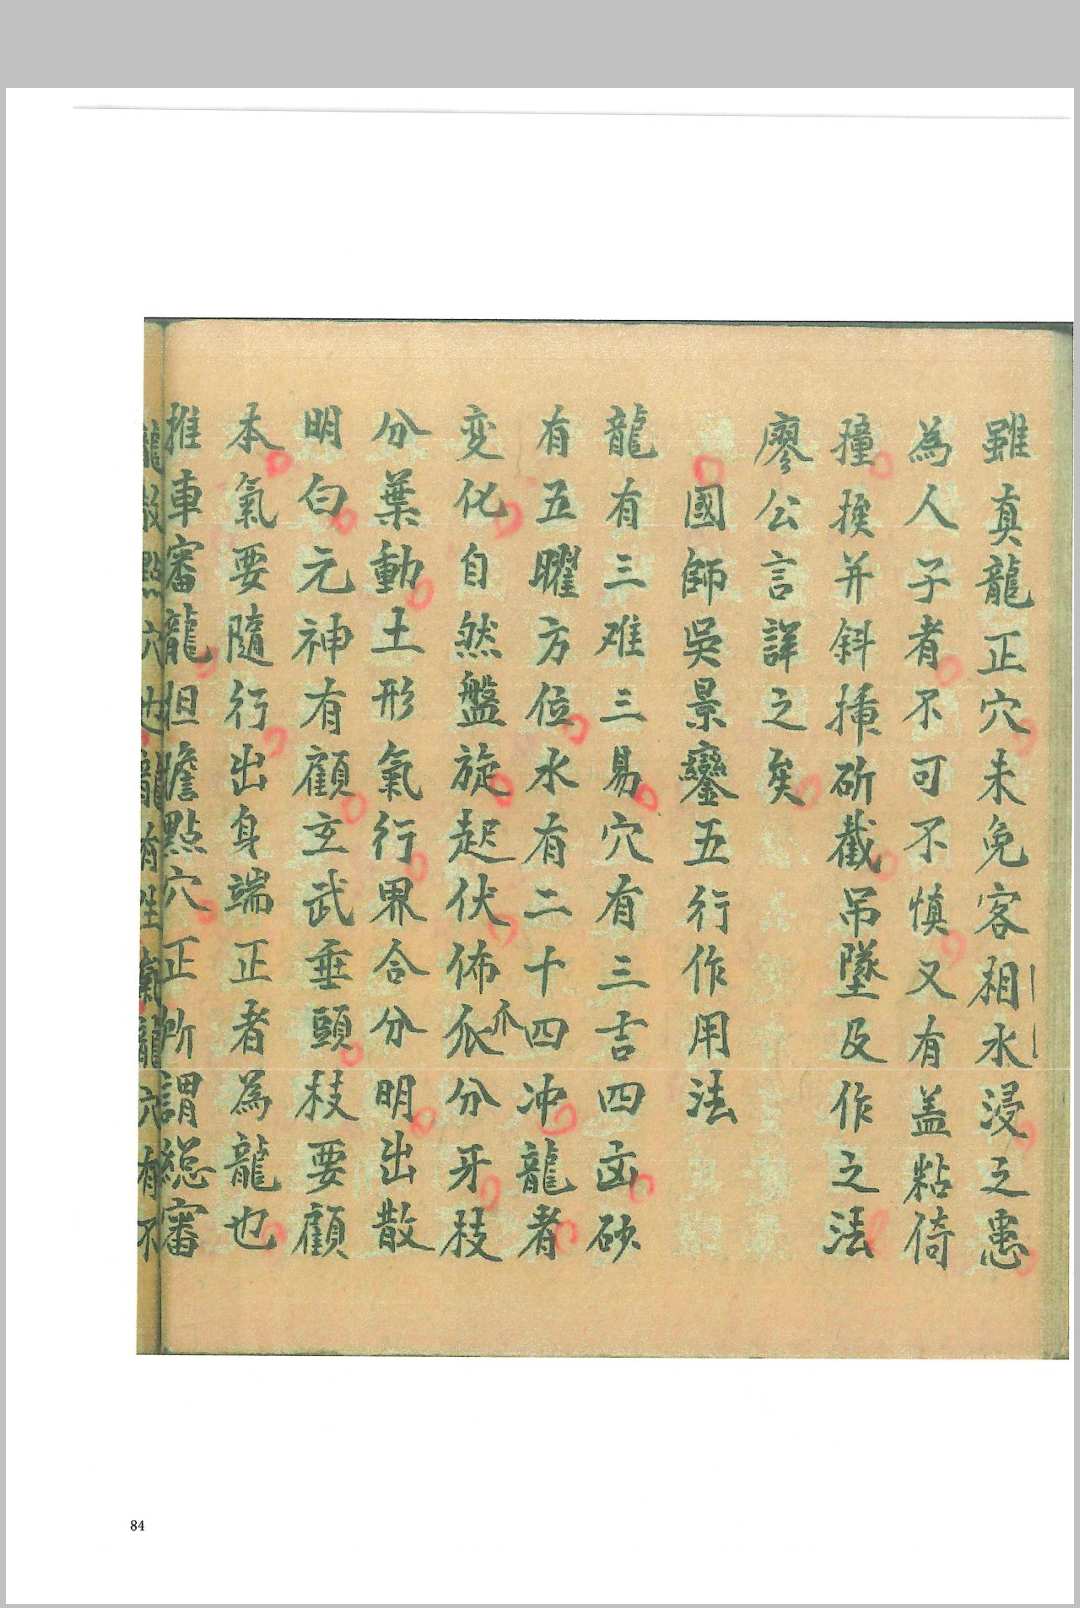 雖真龍正穴未免客相水浸之患
為人子者不可不慎又有盖粘倚
撞揆并斜揷斫截吊墜及作之法
廖公言詳之矣
國師吳景鸞五行作用法
龍有三难三易穴有三吉四凶砂
有五曜方位水有二十四冲龍者
变化自然盤旋起伏佈爪分牙枝
分葉動土形氣行界合分明出散
明白元神有顧玄武垂頭枝要顧
本氣要隨行出身端正者為龍也
推車審龍担儋點穴正所謂総審
84